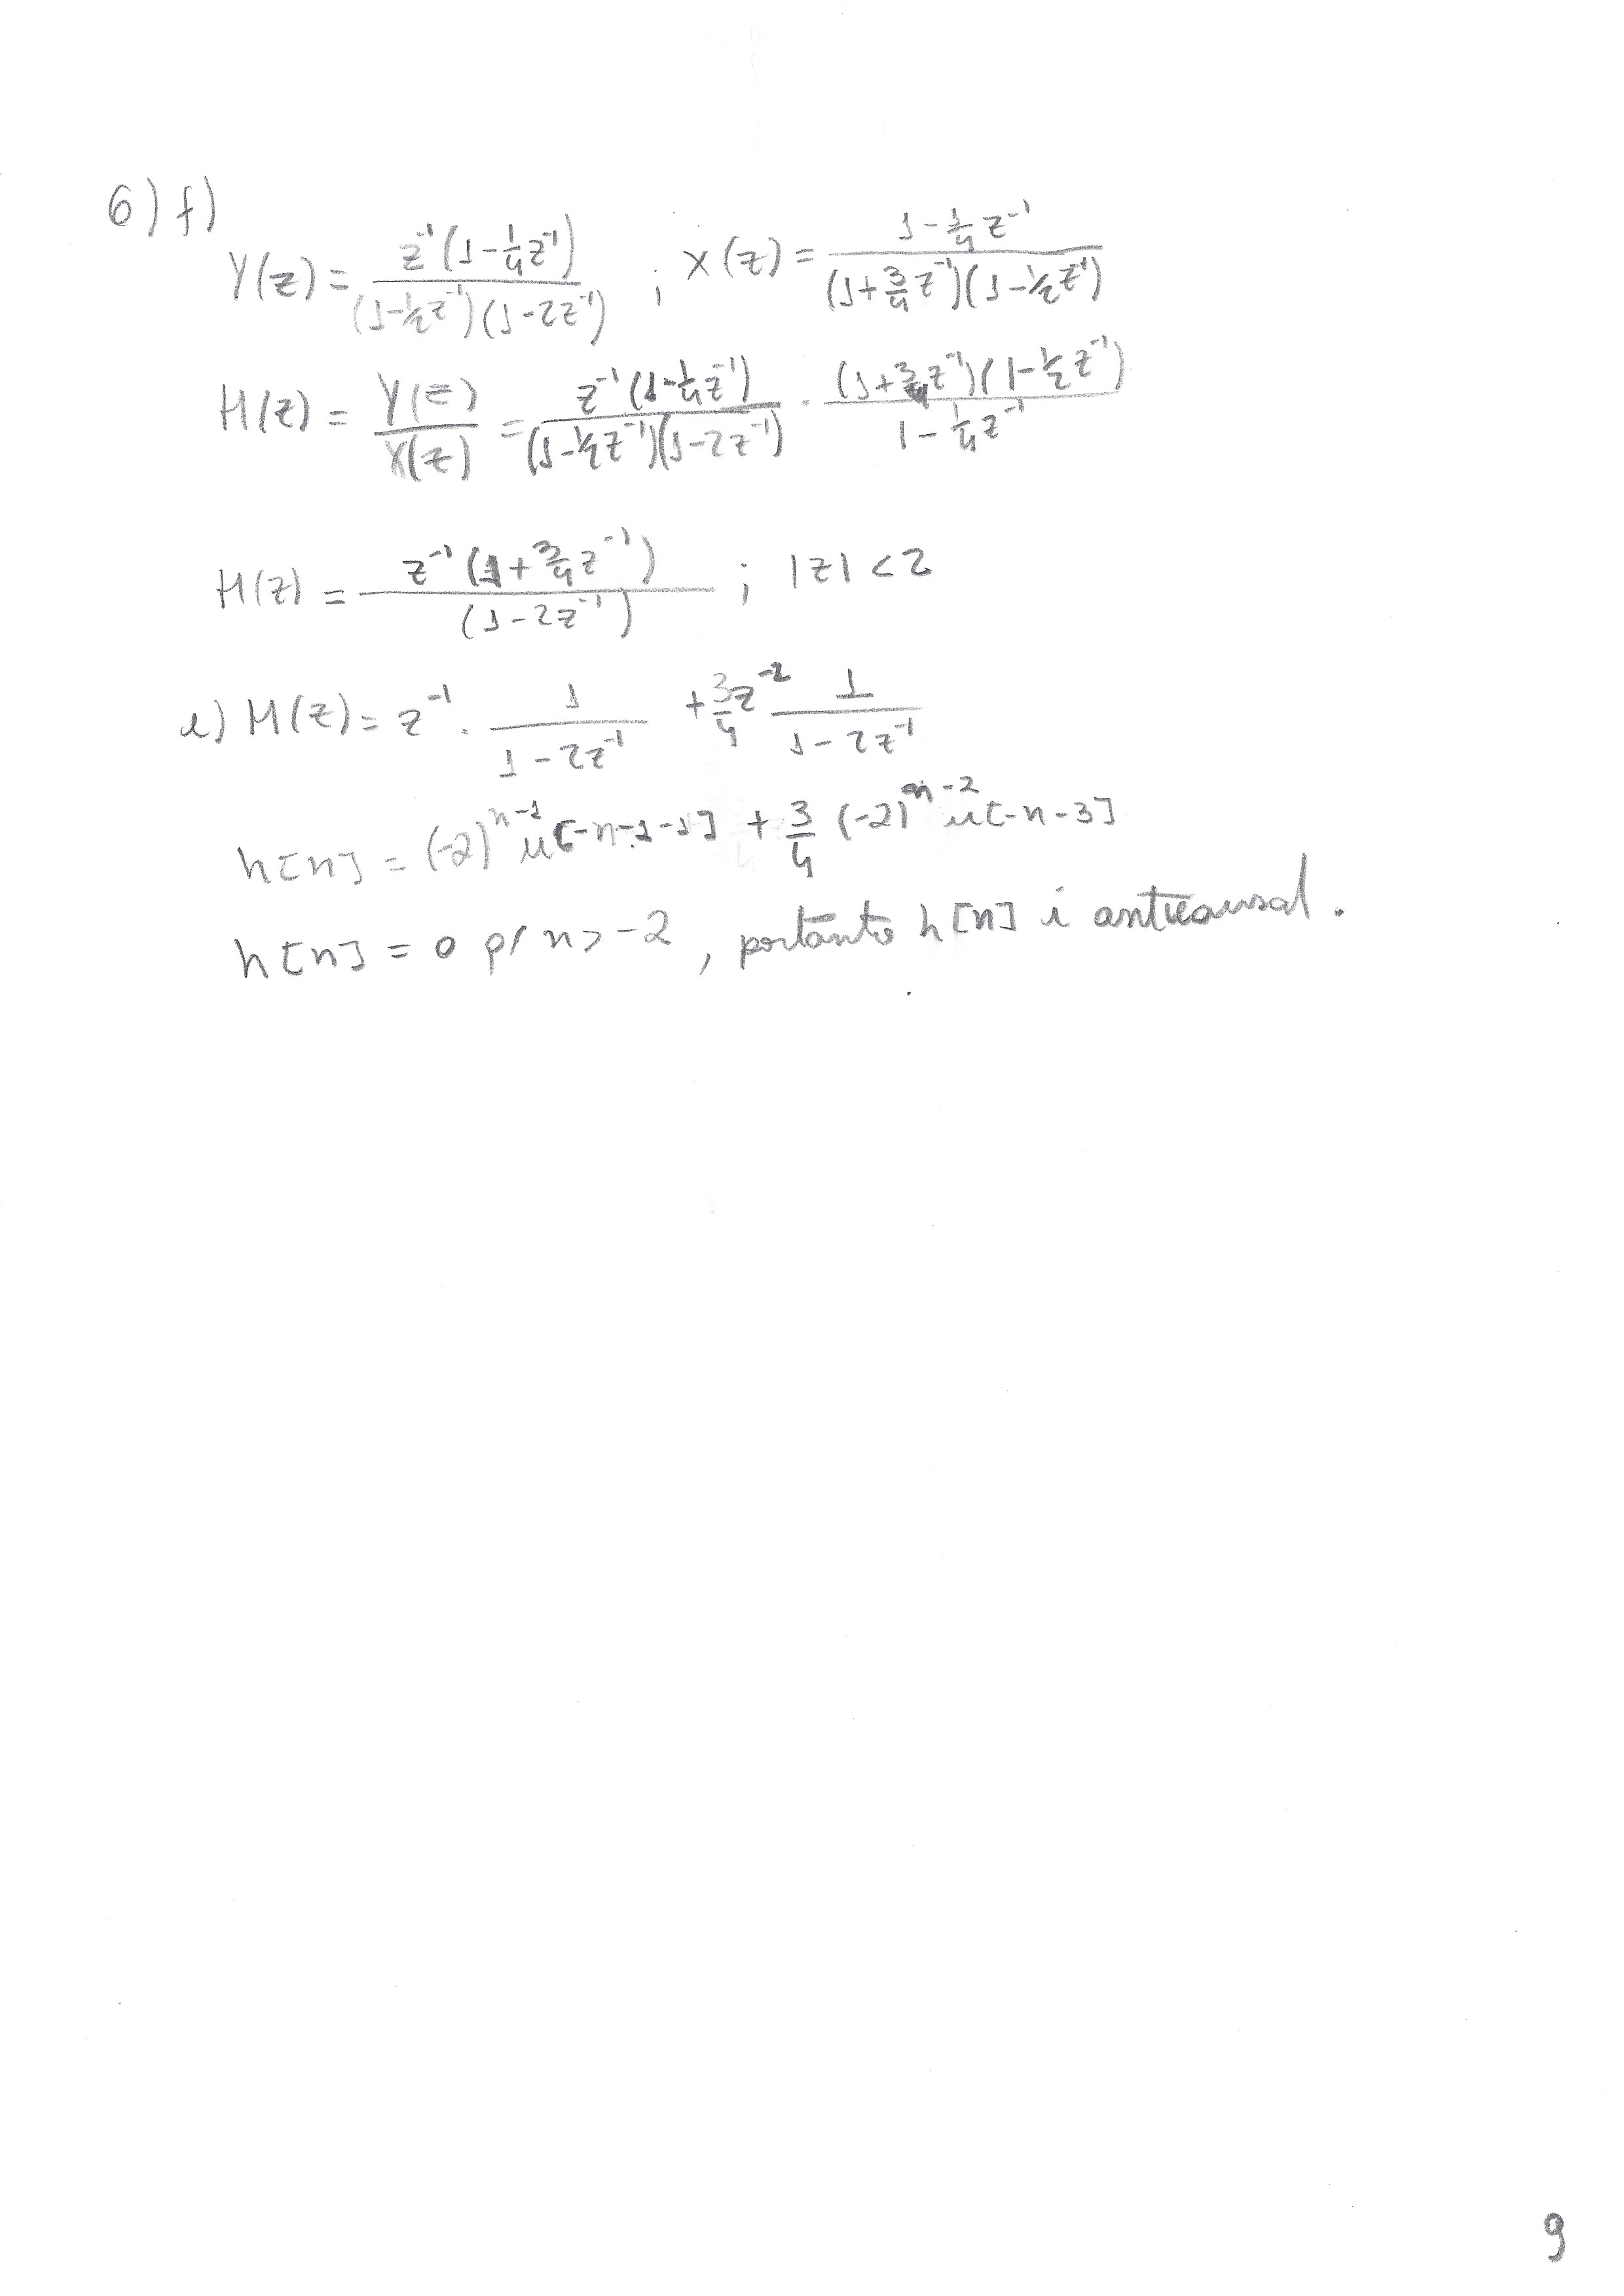 6) f)
Y(z) = z⁻¹(1 - 1/4 z⁻¹) / (1 - 1/2 z⁻¹)(1 - 2z⁻¹) ; X(z) = 1 - 1/4 z⁻¹ / (1 + 3/4 z⁻¹)(1 - 1/2 z⁻¹)
H(z) = Y(z)/X(z) = z⁻¹(1 - 1/4 z⁻¹) / (1 - 1/2 z⁻¹)(1 - 2z⁻¹) · (1 + 3/4 z⁻¹)(1 - 1/2 z⁻¹) / 1 - 1/4 z⁻¹
H(z) = z⁻¹(1 + 3/4 z⁻¹) / (1 - 2z⁻¹) ; |z| < 2
e) H(z) = z⁻¹ · 1 / 1 - 2z⁻¹ + 3/4 z⁻² 1 / 1 - 2z⁻¹
h[n] = (-2)ⁿ⁻¹ u[-n-1-1] + 3/4 (-2)ⁿ⁻² u[-n-3]
h[n] = 0 p/ n > -2, portanto h[n] é anticausal.
9